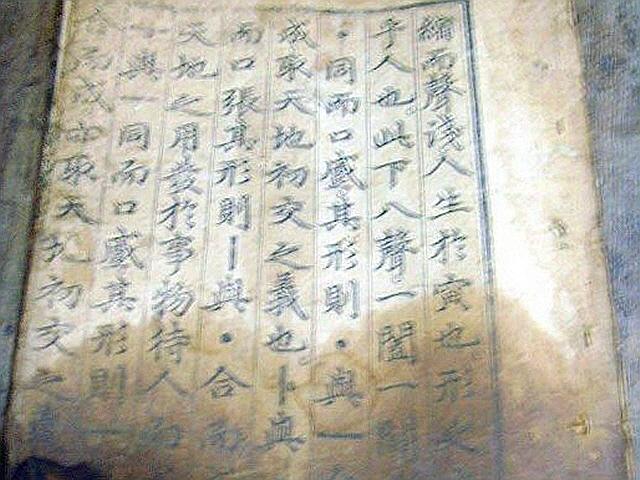 縮而聲淺人生於寅也形之
乎人也此下八聲一闔一闢
ㆍ同而口蹙其形則ㆍ與ㅡ
成取天地初交之義也ㅏ與
而口張其形則ㅣ與ㆍ合而
天地之用發於事物待人而
ㅜ與ㅡ同而口蹙其形則ㅡ
合而成亦取天地初交之義